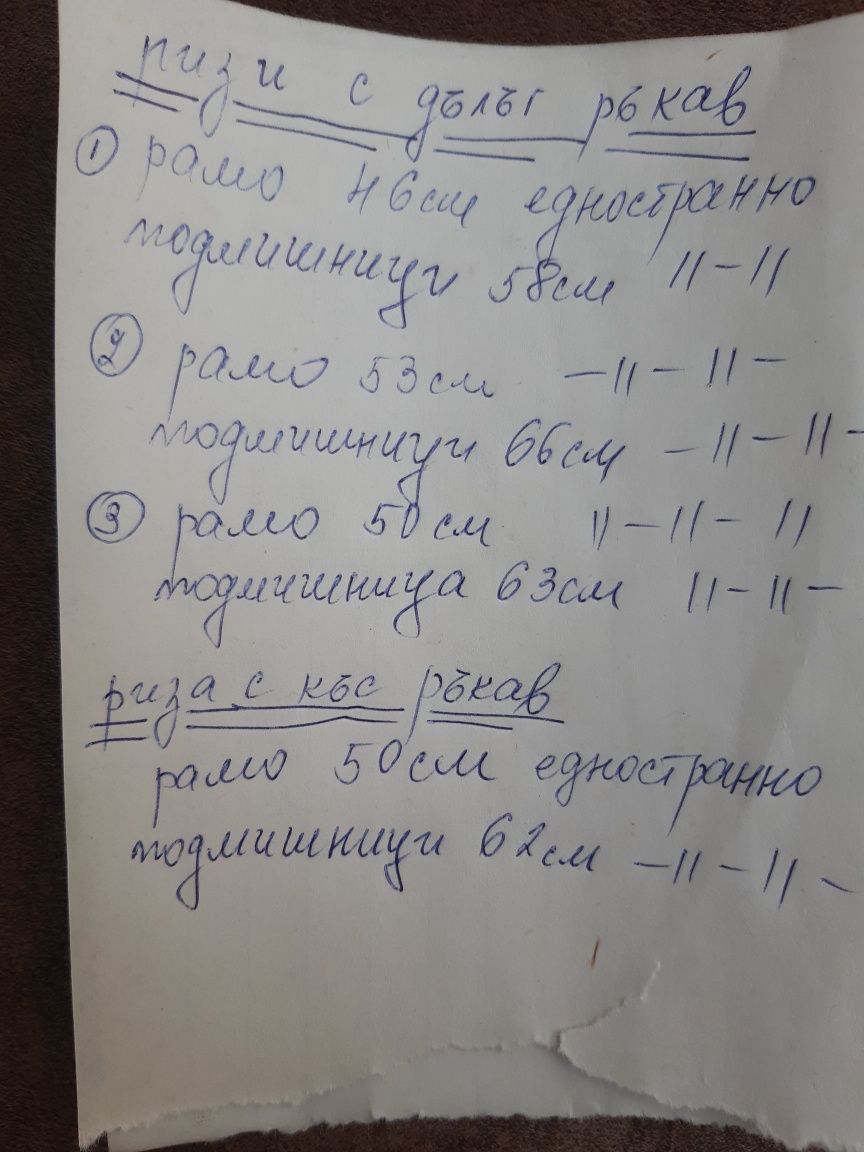 ризи с дълъг ръкав
① рамо 46см едностранно
подмишници 58см //-//
② рамо 53см -//-//-
подмишници 66см -//-//-
③ рамо 50см //-//-//
подмишница 63см //-//-
риза с къс ръкав
рамо 50см едностранно
подмишници 62см -//-//-